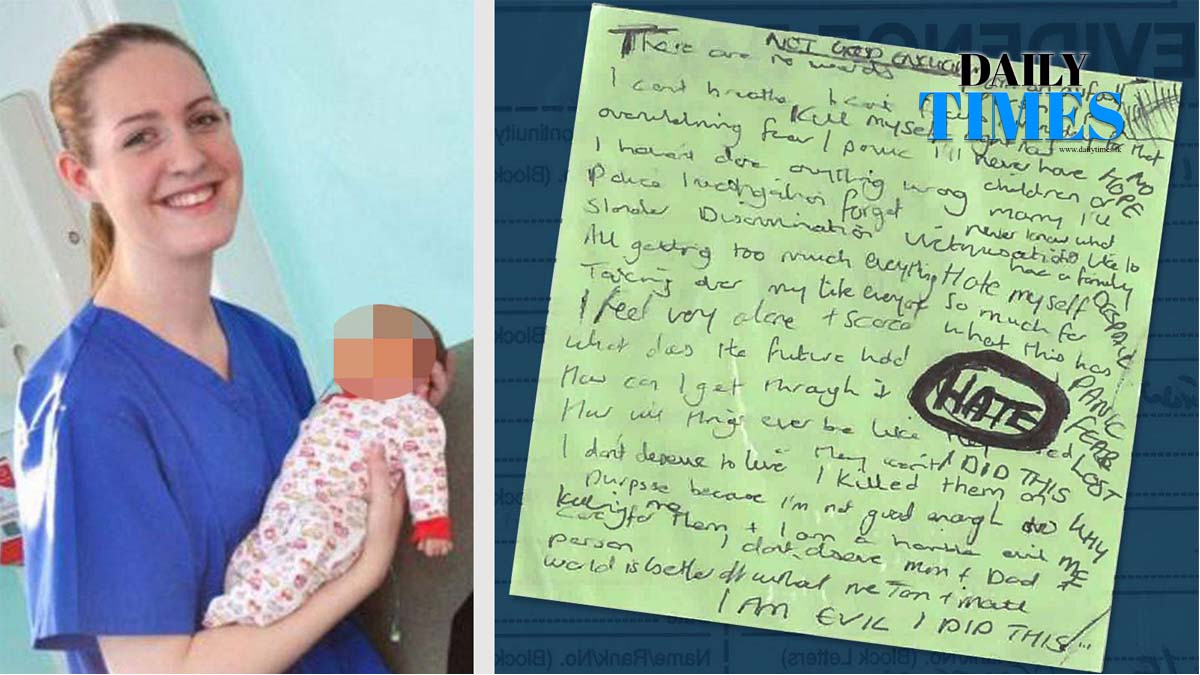 NOT GOOD ENOUGH
There are no words
I can't breathe I can't
Kill myself right now
overwhelming fear / panic I'll never have NO
HOPE
I haven't done anything wrong children or
Police investigation forget marry I'll
never know what
Slander Discrimination Victimisation like to
have a family
All getting too much everything Hate myself DESPAIR
Taking over my life everyone so much for
what this has
I feel very alone + scared PANIC
What does the future hold FEAR
How can I get through it HATE LOST
How will things ever be like they I DID THIS
I don't deserve to live I killed them on WHY
purpose because I'm not good enough to ME
care for them + I am a horrible evil
killing me
person I don't deserve Mum + Dad
world is better off without me
I AM EVIL I DID THIS
DAILY
TIMES
EVIDENCE
Continuity
(Block
(Block
Name/Rank/No. (Block Letters)
Name/Rank/No.